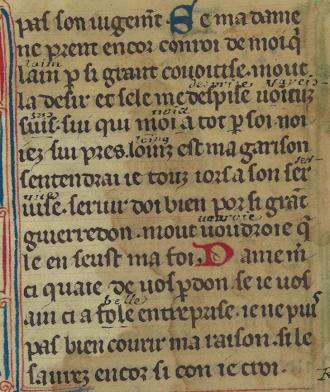 pas son iugemt. Se ma dame
ne prent encor conroi de moi q̄
laim p si grant couoitise. mout
la desir et sele me despise
suis. sui qui moi a tot p soi noi
iez sui pres. est ma garison
sentendrai ie touz iors a son ser
uise. seruir doi bien por si grāt
guerredon. mout uoudroie q̄
le en seust ma foi. Dame m̄
ci quaie de uos p̄don. se ie uos
aim ci a fole entreprise. ie ne puis
pas bien courir ma raison. si le
saurez encor si con ie croi.